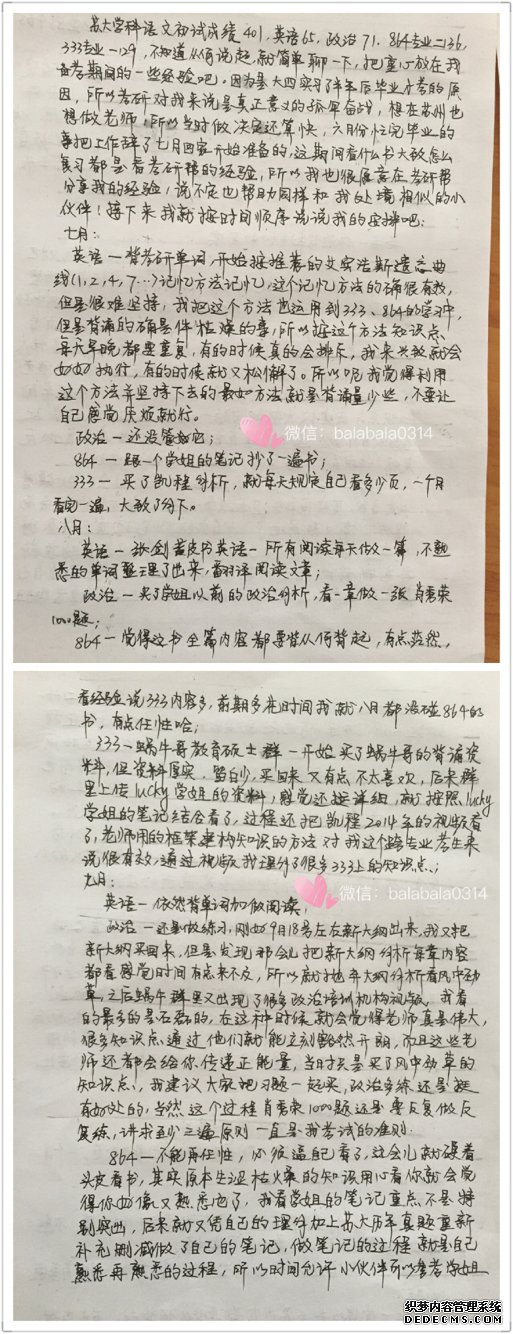 苏大学科语文初试成绩401,英语65,政治71,864专业二136,
333专业一129,不知道从何说起,就简单聊一下,把重心放在我
备考期间的一些经验吧。因为是大四实习了半年后毕业才考的原
因,所以考研对我来说是真正意义的孤军奋战,想在苏州也
想做老师,所以当时做决定还算快,六月份忙完毕业的
事把上作辞了七月回家开始准备的,这期间看什么书大致怎么
复习都是看考研帮的经验,所以我也很愿意在考研帮
分享我的经验,说不定也帮助同样和我处境相似的小
伙伴!接下来我就按时间顺序说说我的安排吧:
七月:
英语一背考研单词,开始按推荐的艾宾浩斯遗忘曲
线(1,2,4,7…)记忆方法记忆,这个记忆方法的确很有效,
但是很难坚持,我把这个方法也运用到333、864的学习中,
但是背诵的确是件枯燥的事,所以按这个方法知识点
每天早晚都要重复,有的时候真的会排斥,我来兴致就会
好好执行,有的时候就又松懈了。所以呢我觉得利用
这个方法并坚持下去的最好方法就是背诵量少些,不要让
自己感觉厌烦就行。
政治一还没管它;
864一跟一个学姐的笔记抄了一遍书;
333一买了凯程分析,就每天规定自己看多少页,一个月
看完一遍,大致了解下。
微信:balabala0314
八月:
英语一张剑黄皮书英语一所有阅读每天做一篇,不熟
悉的单词整理了出来,翻译阅读文章;
政治一买了学姐以前的政治分析,看一章做一张肖秀荣
1000题;
864一觉得这书全篇内容都要背从何背起,有点茫然,
看经验说333内容多,前期多花时间我就八月都没碰864的
书,有点任性哈;
333一蜗牛哥教育硕士群一开始买了蜗牛哥的背诵资
料,但资料厚实,留白少,买回来又有点不太喜欢,后来群
里上传lucky学姐的资料,感觉还挺详细,就按照lucky
学姐的笔记结合看了,过程还把凯程2014年的视频看
了,老师用的框架建构知识的方法对我这个跨专业考生来
说很有效,通过视频我理解了很多333上的知识点;
九月:
英语一依然背单词加做阅读;
微信:balabala0314
政治一还是做练习,刚好9月18号左右新大纲出来,我又把
新大纲买回来,但是发现那会儿把新大纲分析每章内容
都看感觉时间有点来不及,所以就抛弃大纲分析看风中劲
草,之后蜗牛群里又出现了很多政治培训机构视频,我看
的最多的是石磊的,在这种时候就会觉得老师真是伟大,
很多知识点通过他们就能立刻豁然开朗,而且这些老
师还都会给你传递正能量,当时只是买了风中劲草的
知识点,我建议大家把习题一起买,政治多练还是挺
有好处的,当然这个过程肖秀荣1000题还是要反复做反
复练,讲求至少三遍原则一直是我考试的准则.
864一不能再任性,必须逼自己看了,这会儿就硬着
头皮看书,其实原本生涩枯燥的知识用心看你就会觉
得你好像又熟悉它了,我看学姐的笔记重点不是特
别突出,后来就又凭自己的理解加上苏大历年真题重新
补充删减做了自己的笔记,做笔记的过程就是自己
熟悉再熟悉的过程,所以时间允许小伙伴可以参考学姐
织梦内容管理系统
DEDECMS.COM